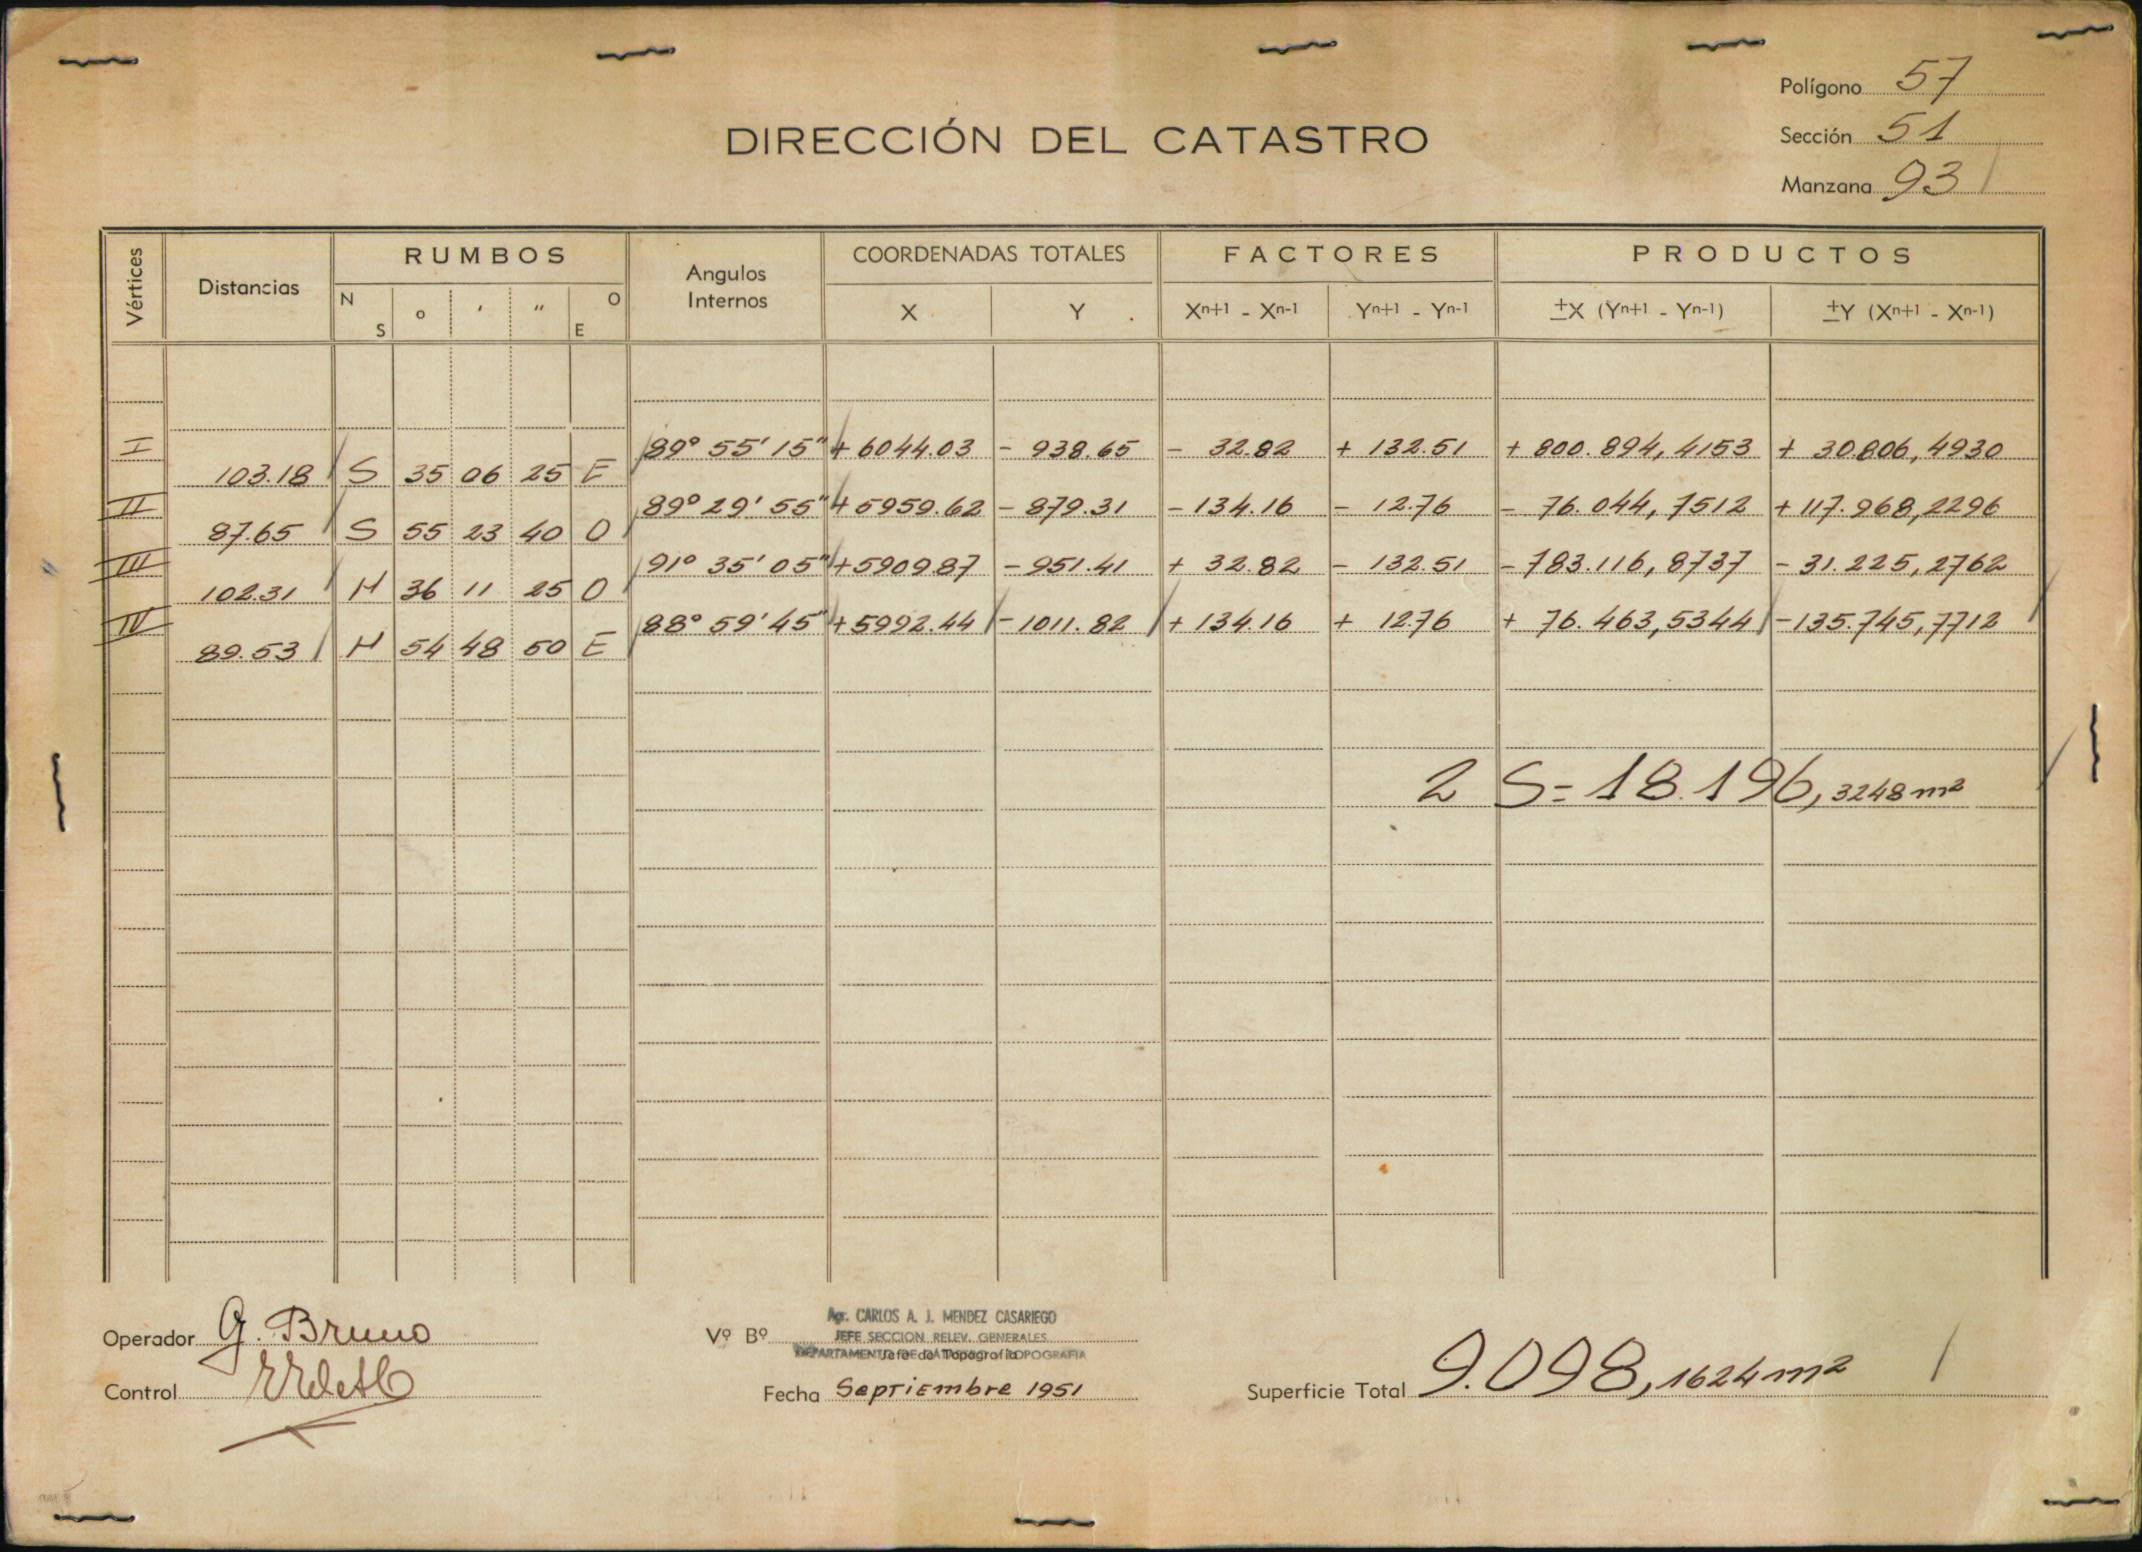 Polígono 57
DIRECCIÓN DEL CATASTRO
Sección 51
Manzana 93
Vértices Distancias RUMBOS Angulos Internos COORDENADAS TOTALES FACTORES PRODUCTOS
N S o ' " O E X Y Xn+1 - Xn-1 Yn+1 - Yn-1 ±X (Yn+1 - Yn-1) ±Y (Xn+1 - Xn-1)
I 89° 55' 15" + 6044.03 - 938.65 - 32.82 + 132.51 + 800.894,4153 + 30.806,4930
103.18 S 35 06 25 E
II 89° 29' 55" + 5959.62 - 879.31 - 134.16 - 12.76 - 76.044,7512 + 117.968,2296
87.65 S 55 23 40 O
III 91° 35' 05" + 5909.87 - 951.41 + 32.82 - 132.51 - 783.116,8737 - 31.225,2762
102.31 N 36 11 25 O
IV 88° 59' 45" + 5992.44 - 1011.82 + 134.16 + 12.76 + 76.463,5344 - 135.745,7712
89.53 N 54 48 50 E
2 S = 18.196,3248 m²
Operador G. Bruno
Vº Bº
Agr. CARLOS A. J. MENDEZ CASARIEGO
JEFE SECCION RELEV. GENERALES
Jefe de Topografía
Control
Fecha Septiembre 1951
Superficie Total 9.098,1624 m²